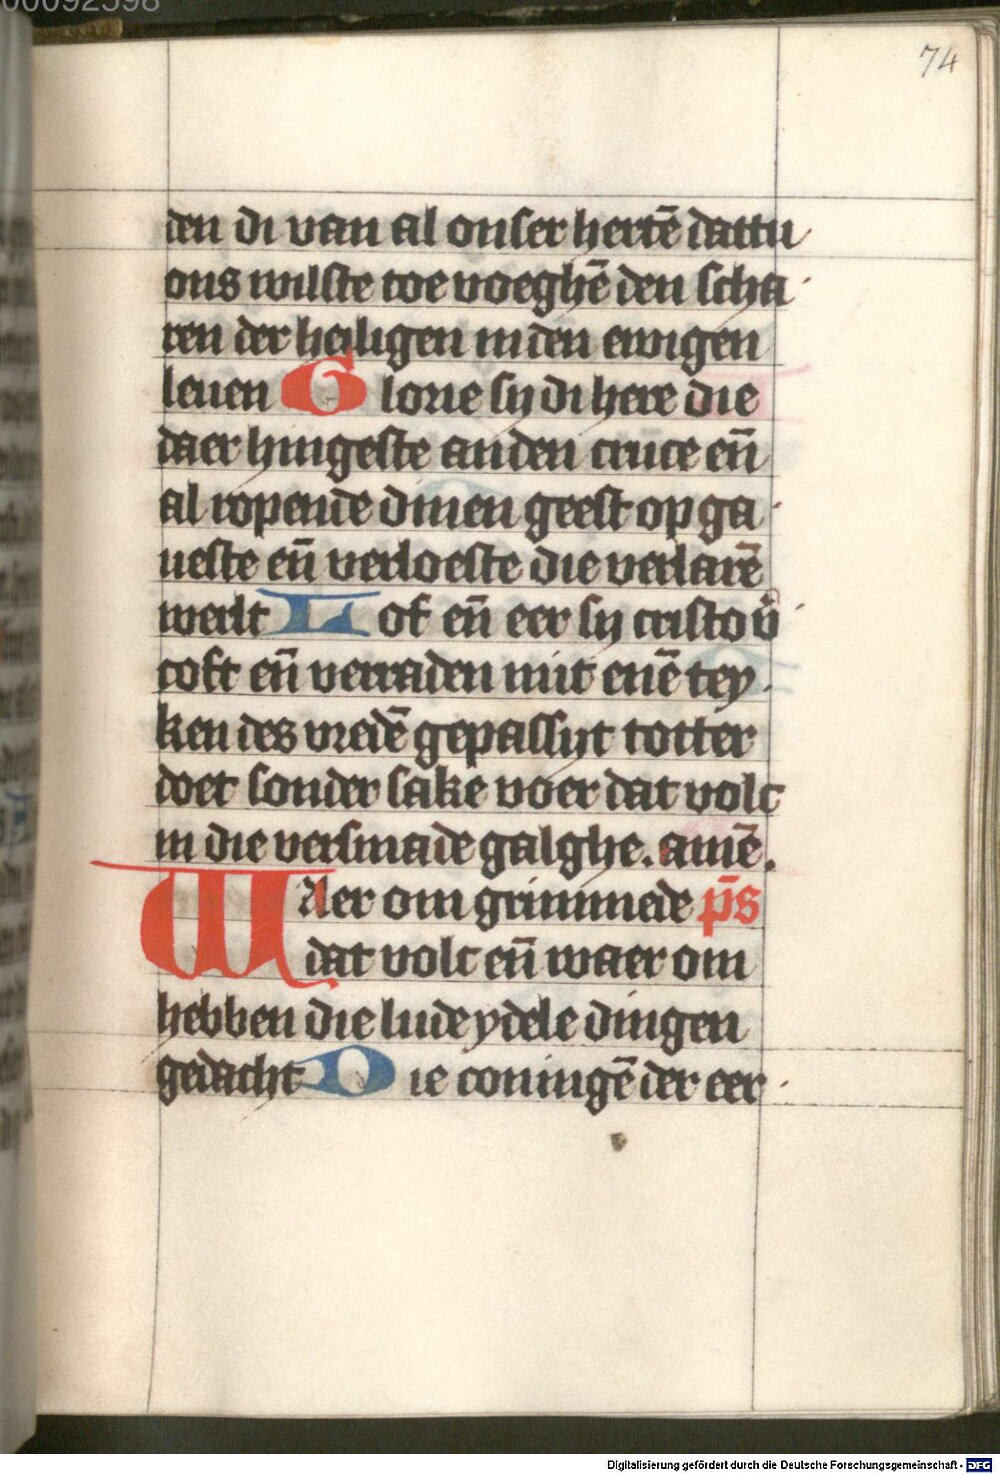 00092598
74
den di van al onser hertē dattu
ons wilste toe voeghē den scha
ren der heiligen in den ewigen
leuen Glorie sij di here die
daer hingeste an den cruce en̄
al ropende dinen geest op ga
ueste en̄ verloeste die verlarē
werlt Lof en̄ eer sij cristo v̄
coft en̄ verraden mit enē tey
ken des vredē gepassijt totter
doet sonder sake voer dat volc
in die versmade galghe. amē.
Waer om grimmede p̄s
dat volc en̄ waer om
hebben die lude ydele dingen
gedacht Die coningē der eer
Digitalisierung gefördert durch die Deutsche Forschungsgemeinschaft - DFG